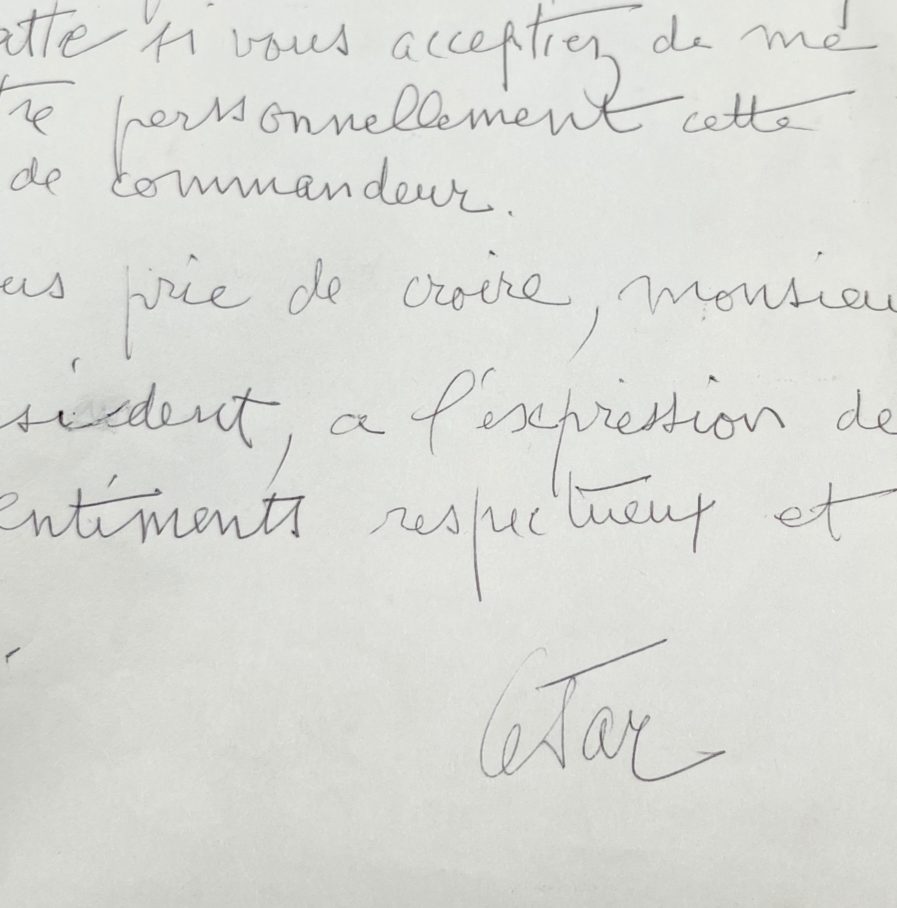 atte si vous acceptiez de me
tre personnellement cette
de commandeur.
ous prie de croire, monsieu
sident, a l'expression de
entiments respectueux et
César